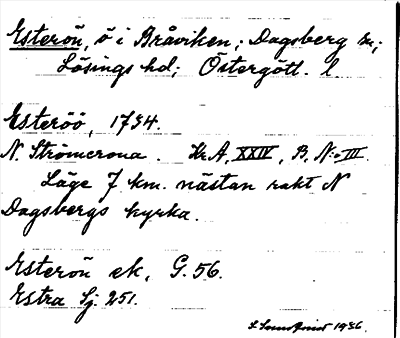 Esterön, ö i Bråviken; Dagsberg sn;
Lösings hd; Östergötl. l
Esteröö, 1734.
N. Strömcrona. Kr.A, XXIV, B, N:o III.
Läge 7 km. nästan rakt N
Dagsbergs kyrka.
Esterön ek, G. 56.
Estra Sj. 251.
1936.